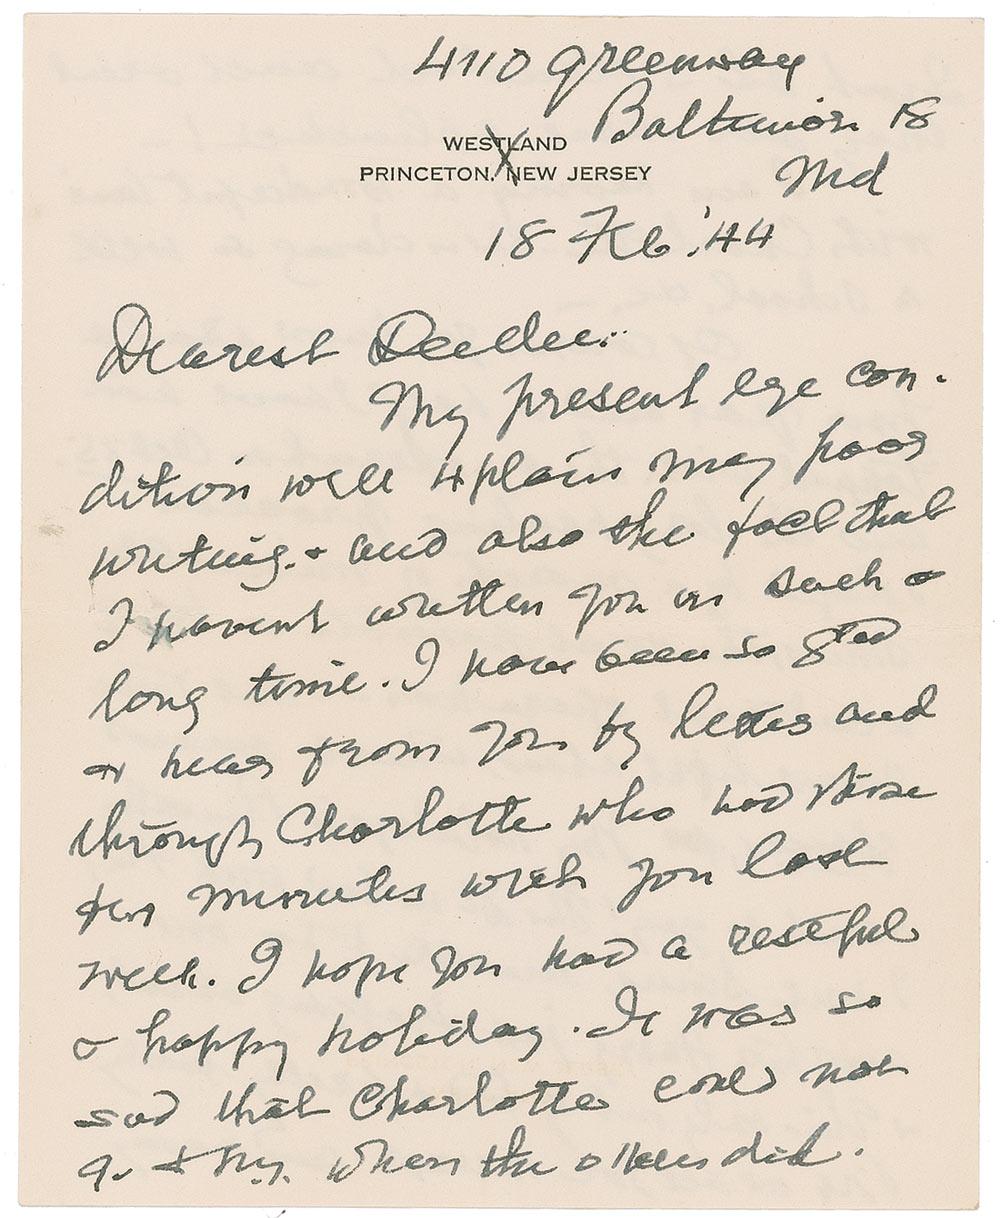 4110 Greenway
Baltimore 18
WESTLAND
PRINCETON, NEW JERSEY
Md
18 Feb '44
Dearest Deedee:
My present eye con-
dition will xplain my poor
writing. & and also the fact that
I havent written you in such a
long time. I have been so glad
to hear from you by letter and
through Charlotte who had
few minutes with you last
week. I hope you had a restful
& happy holiday. It was so
sad that Charlotte could not
go to N.Y. when the others did.